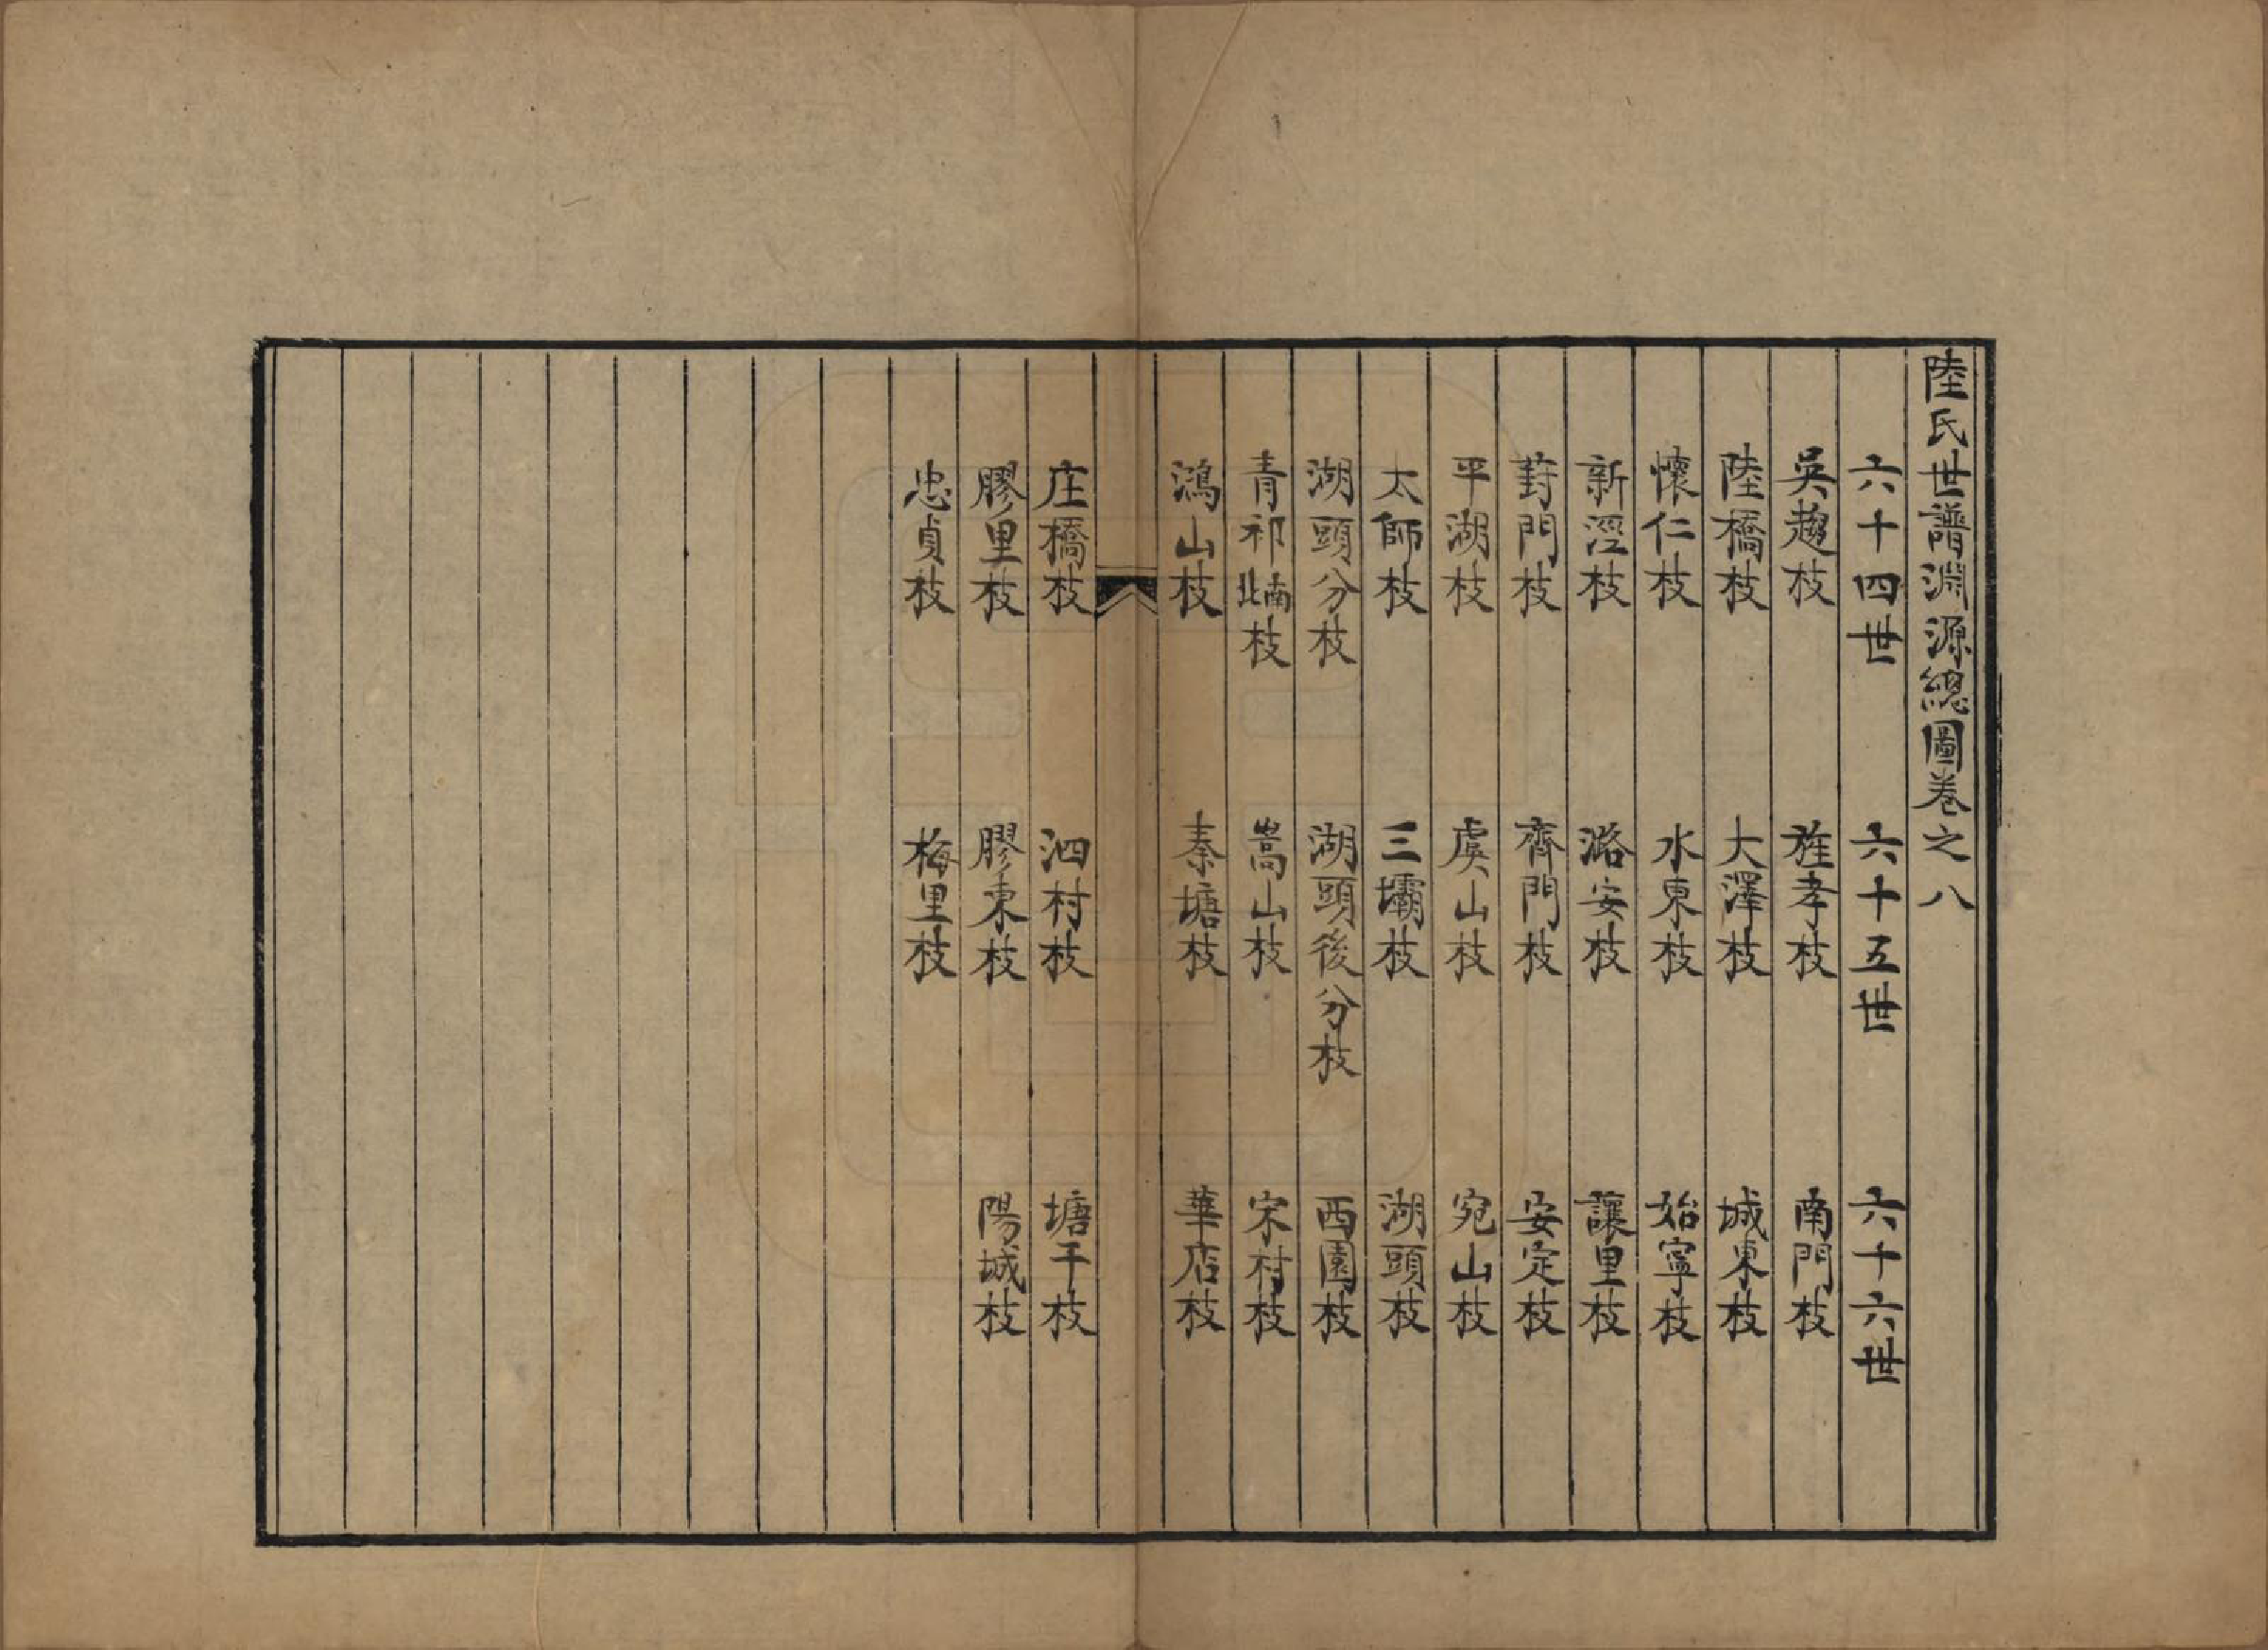 陸氏世譜淵源總圖卷之八
六十四世　六十五世　六十六世
吳趨枝　旌孝枝　南門枝
陸橋枝　大澤枝　城東枝
懷仁枝　水東枝　始寧枝
新涇枝　潞安枝　讓里枝
葑門枝　齊門枝　安定枝
平湖枝　虞山枝　宛山枝
太師枝　三壩枝　湖頭枝
湖頭分枝　湖頭後分枝　西園枝
青祁南北枝　嵩山枝　宋村枝
鴻山枝　秦塘枝　華店枝
庄橋枝　泗村枝　塘干枝
膠里枝　膠東枝　陽城枝
忠貞枝　梅里枝